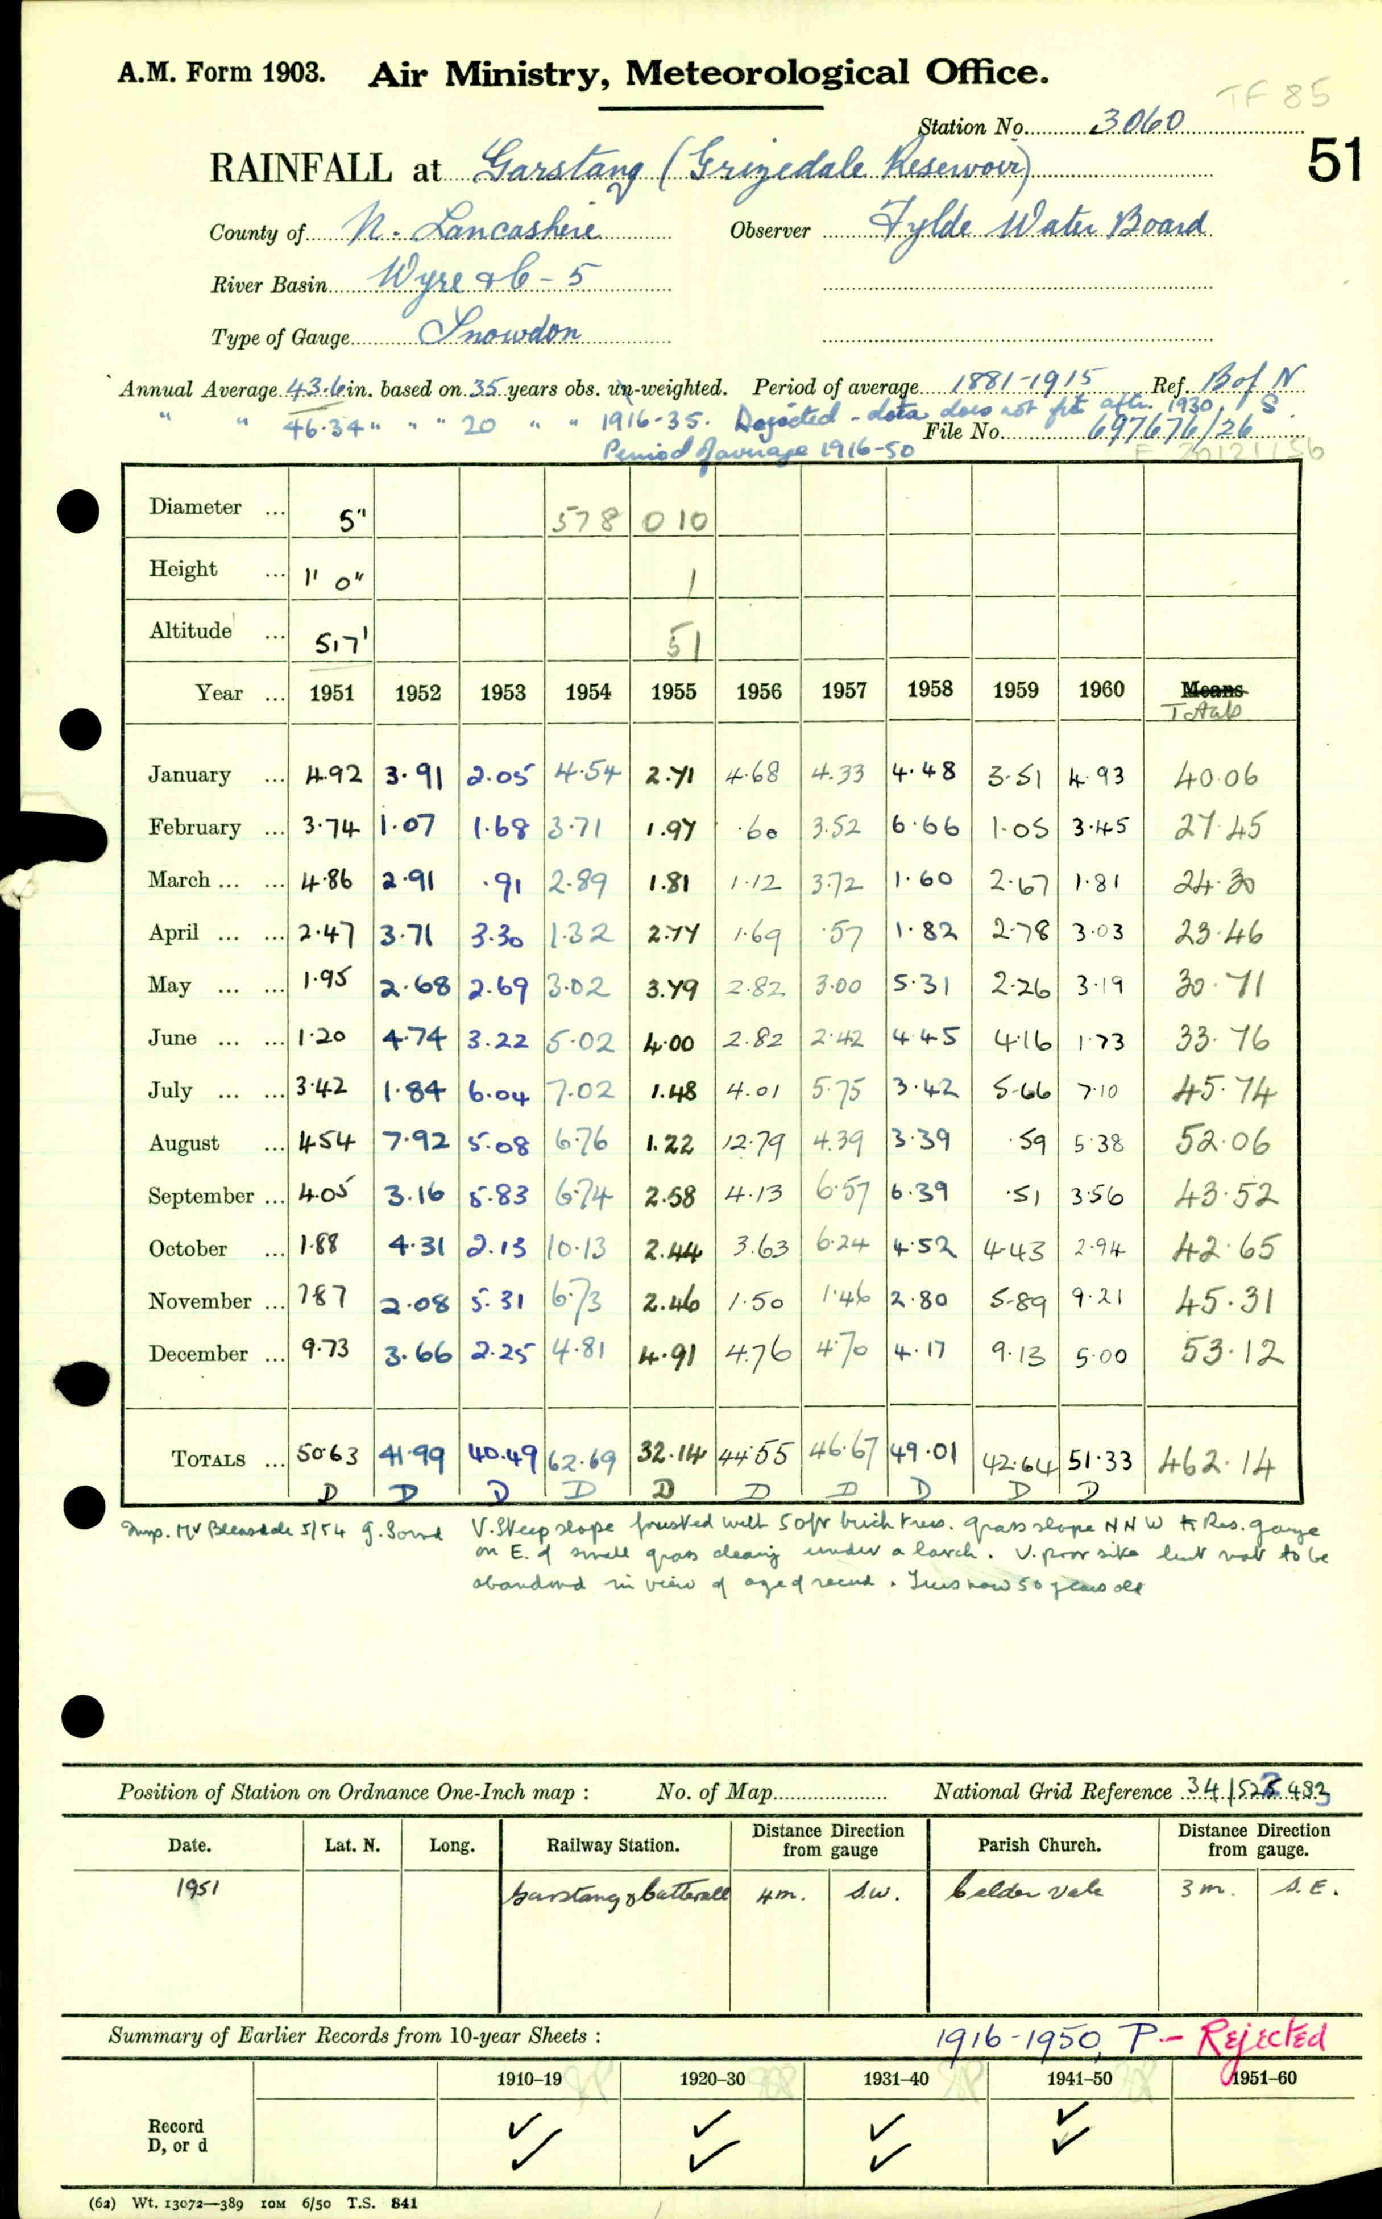 A.M. Form 1903. Air Ministry, Meteorological Office.
TF 85
Station No. 3060
51
RAINFALL at Garstang (Grizedale Reservoir)
County of N. Lancashire Observer Fylde Water Board
River Basin Wyre &c - 5
Type of Gauge Snowdon
Annual Average 43.6 in. based on 35 years obs. un-weighted. Period of average 1881-1915 Ref. B of N
" " 46.34 " " " 20 " " 1916-35. Rejected - data does not fit after 1930 / S.
File No. 697676/26
Period of average 1916-50 E 20121156
Diameter ... 5" 578 010
Height ... 1' 0" 1
Altitude ... 517' 51
Year ... 1951 1952 1953 1954 1955 1956 1957 1958 1959 1960 Means
Totals
January ... 4.92 3.91 2.05 4.54 2.71 4.68 4.33 4.48 3.51 4.93 40.06
February ... 3.74 1.07 1.68 3.71 1.97 .60 3.52 6.66 1.05 3.45 27.45
March ... ... 4.86 2.91 .91 2.89 1.81 1.12 3.72 1.60 2.67 1.81 24.30
April ... ... 2.47 3.71 3.30 1.32 2.77 1.69 .57 1.82 2.78 3.03 23.46
May ... ... 1.95 2.68 2.69 3.02 3.79 2.82 3.00 5.31 2.26 3.19 30.71
June ... ... 1.20 4.74 3.22 5.02 4.00 2.82 2.42 4.45 4.16 1.73 33.76
July ... ... 3.42 1.84 6.04 7.02 1.48 4.01 5.75 3.42 5.66 7.10 45.74
August ... 4.54 7.92 5.08 6.76 1.22 12.79 4.39 3.39 .59 5.38 52.06
September ... 4.05 3.16 5.83 6.74 2.58 4.13 6.57 6.39 .51 3.56 43.52
October ... 1.88 4.31 2.13 10.13 2.44 3.63 6.24 4.52 4.43 2.94 42.65
November ... 7.87 2.08 5.31 6.73 2.46 1.50 1.46 2.80 5.89 9.21 45.31
December ... 9.73 3.66 2.25 4.81 4.91 4.76 4.70 4.17 9.13 5.00 53.12
TOTALS ... 50.63 41.99 40.49 62.69 32.14 44.55 46.67 49.01 42.64 51.33 462.14
D D D D D D D D D D
Insp. Mr Bleasdale 5/54 g. Sound V. Steep slope forested with 50ft birch trees. grass slope NNW to Res. gauge
on E. of small grass clearing under a larch. V. poor site but not to be
abandoned in view of age of record. Trees now 50 years old
Position of Station on Ordnance One-Inch map : No. of Map National Grid Reference 34/522483
Date. Lat. N. Long. Railway Station. Distance from gauge Direction Parish Church. Distance from gauge. Direction
1951 Garstang & Catterall 4m. S.W. Calder Vale 3m. S.E.
Summary of Earlier Records from 10-year Sheets : 1916-1950, P. - Rejected
1910-19 1920-30 1931-40 1941-50 1951-60
Record
D, or d
✓ ✓ ✓ ✓
✓ ✓ ✓ ✓
(62) Wt. 13072—389 10M 6/50 T.S. 841